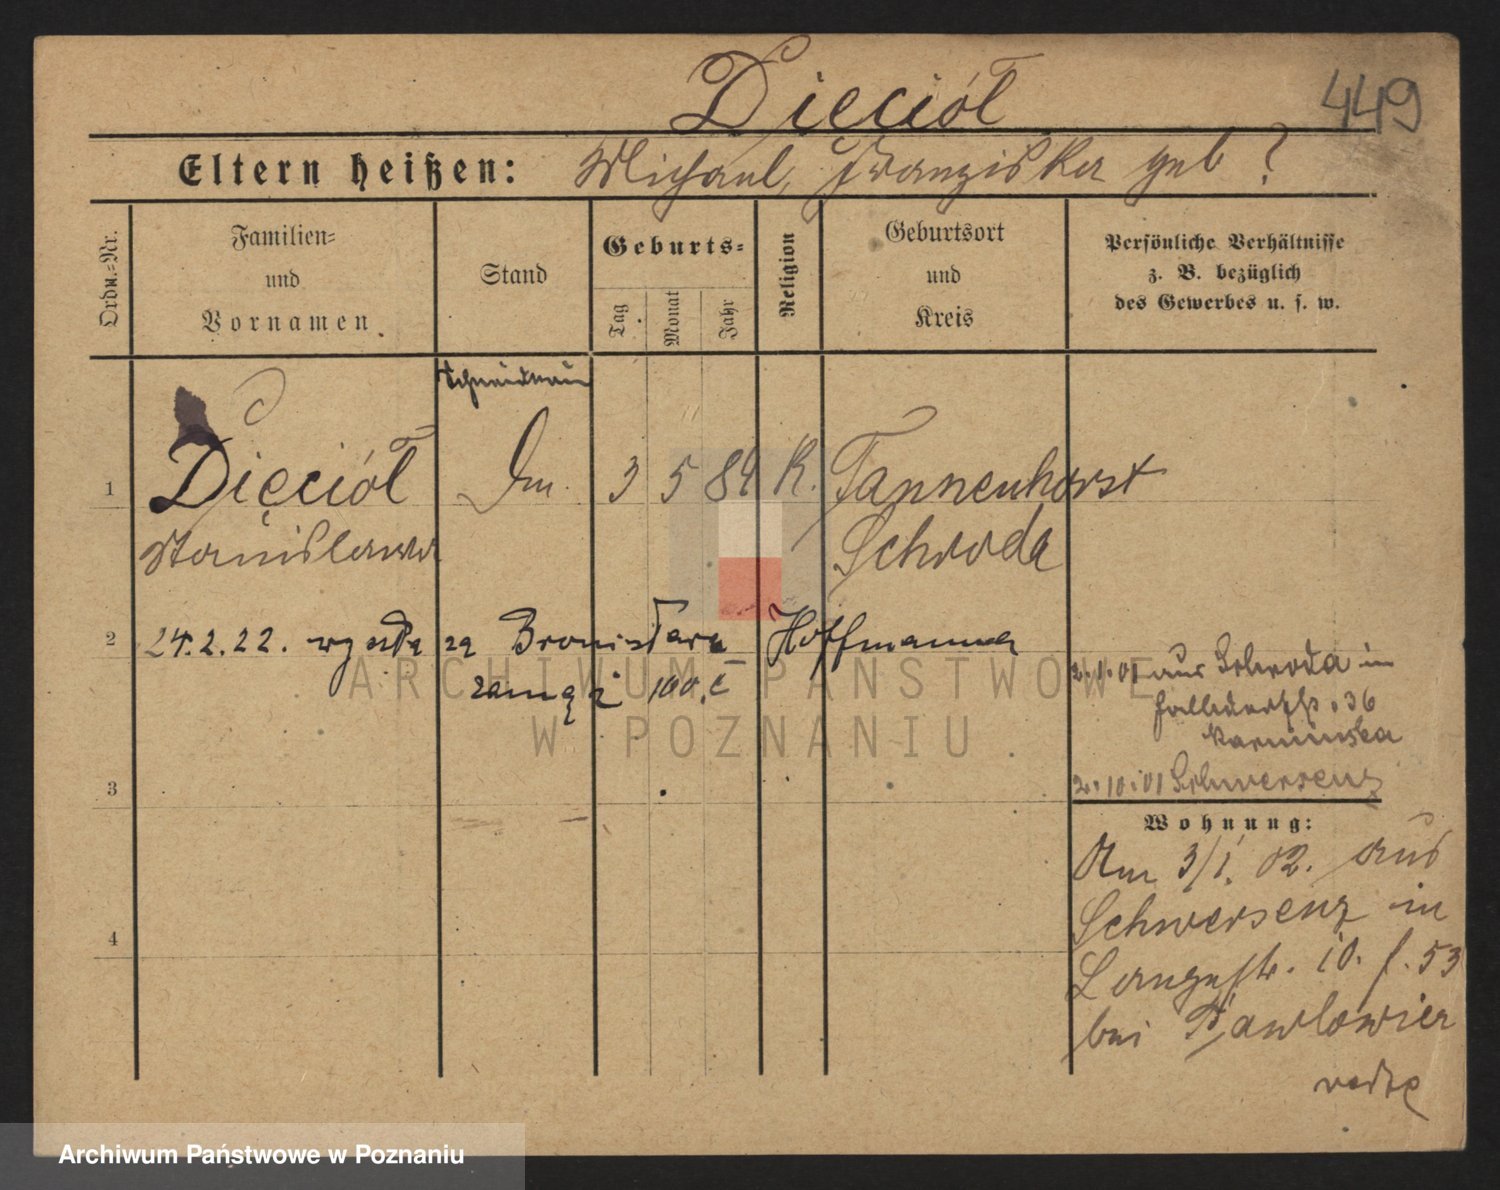 Dięciół
449
Eltern heißen: Michael, Franziska geb ?
Ordn.-Nr.
Familien-
und
Vornamen
Stand
Geburts-
Tag
Monat
Jahr
Religion
Geburtsort
und
Kreis
Persönliche Verhältnisse
z. B. bezüglich
des Gewerbes u. s. w.
1
Dięciół
Stanislawa
3 5 84 K.
Tannenhorst
Schroda
2
24.2.22. wyszła za Bronisława Hoffmanna
zamąż
2.1.01 aus Schroda in
36
2.10.01 Schwersenz
3
Wohnung:
Am 3/1. 02. aus
Schwersenz in
Langestr. 10. f. 53
bei Pawlowicz
4
ARCHIWUM PAŃSTWOWE
W POZNANIU.
Archiwum Państwowe w Poznaniu